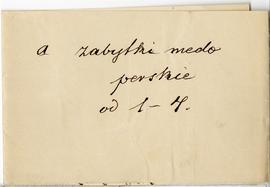 a zabytki medo
perskie
od 1-7.